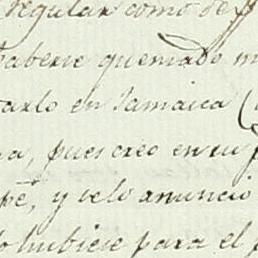 regular como de
haberse quemado
tarlo en Jamaica (
a, pues creo en su
pe, y velo anuncio
lo hubiese para el